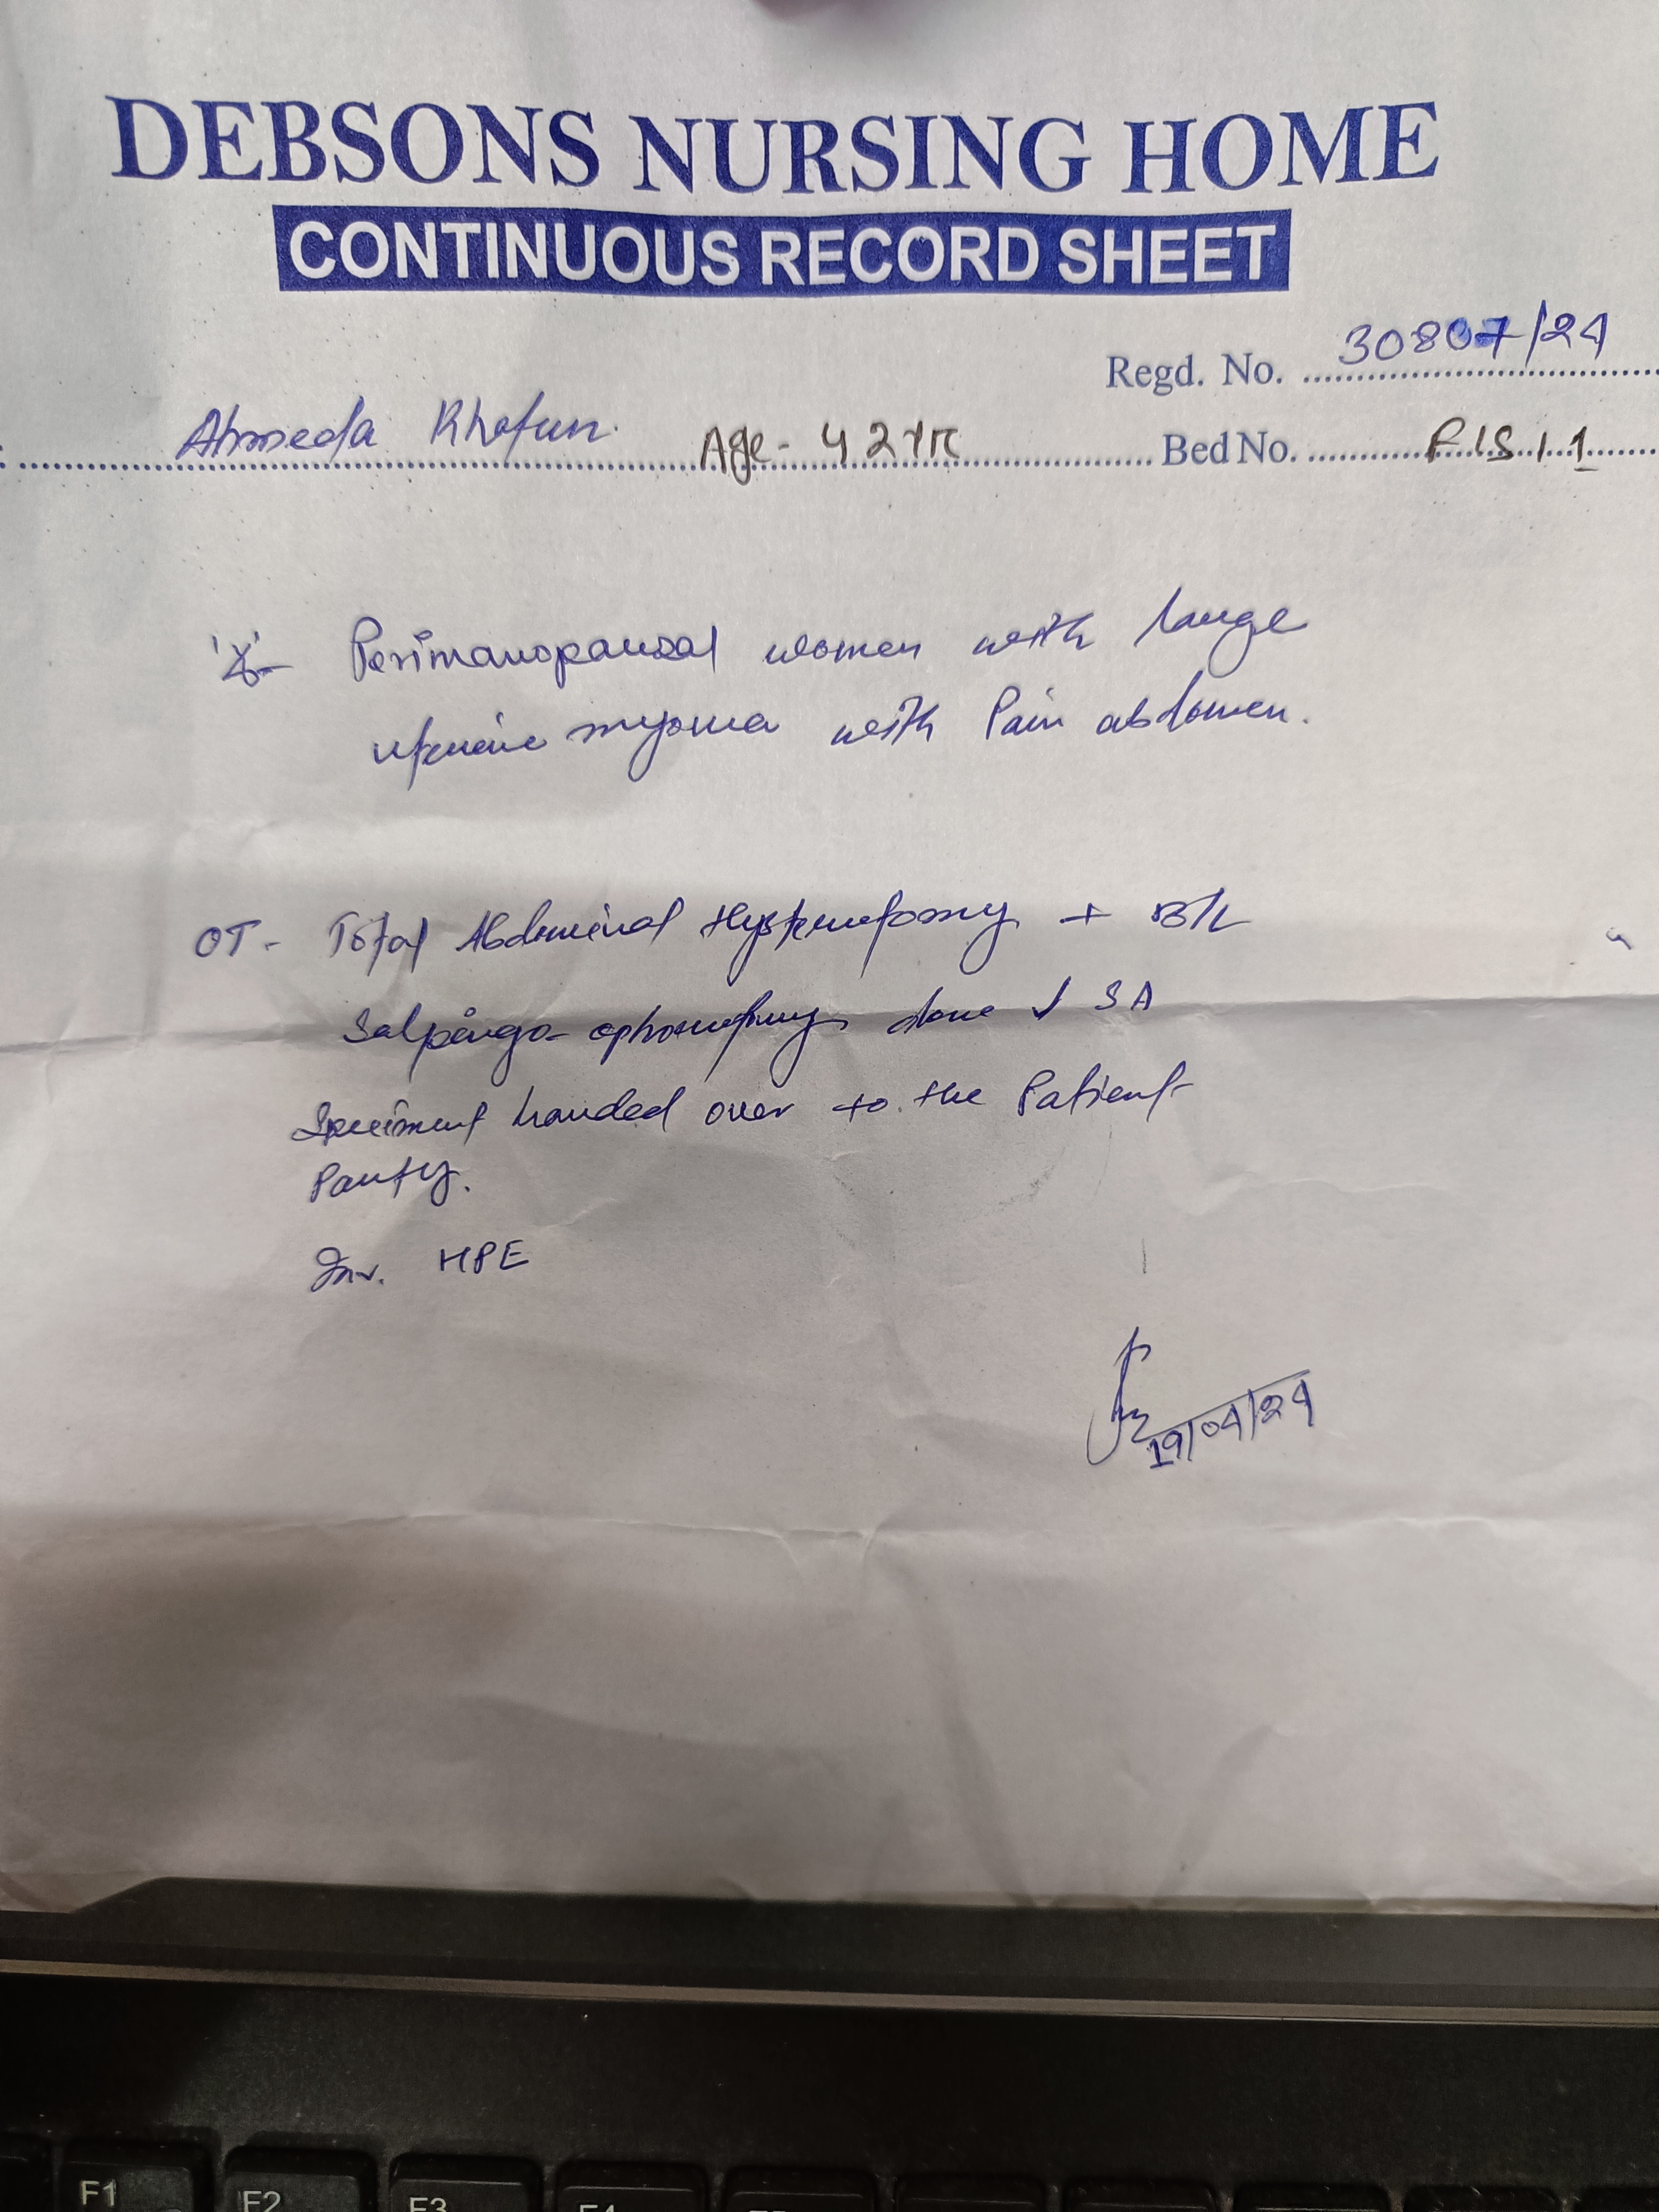 DEBSONS NURSING HOME
CONTINUOUS RECORD SHEET
Regd. No. 30807/24
Ahmeda Khatun. Age - 42 yr Bed No.
Perimanopausal women with large
uterine myoma with Pain abdomen.
OT - Total Abdominal Hysterectomy + B/L
Salpingo-ophorectomy done ↓ SA
Speciment handed over to the Patient
Party.
Inv. HPE
19/04/24
F1 F2 F3 F4